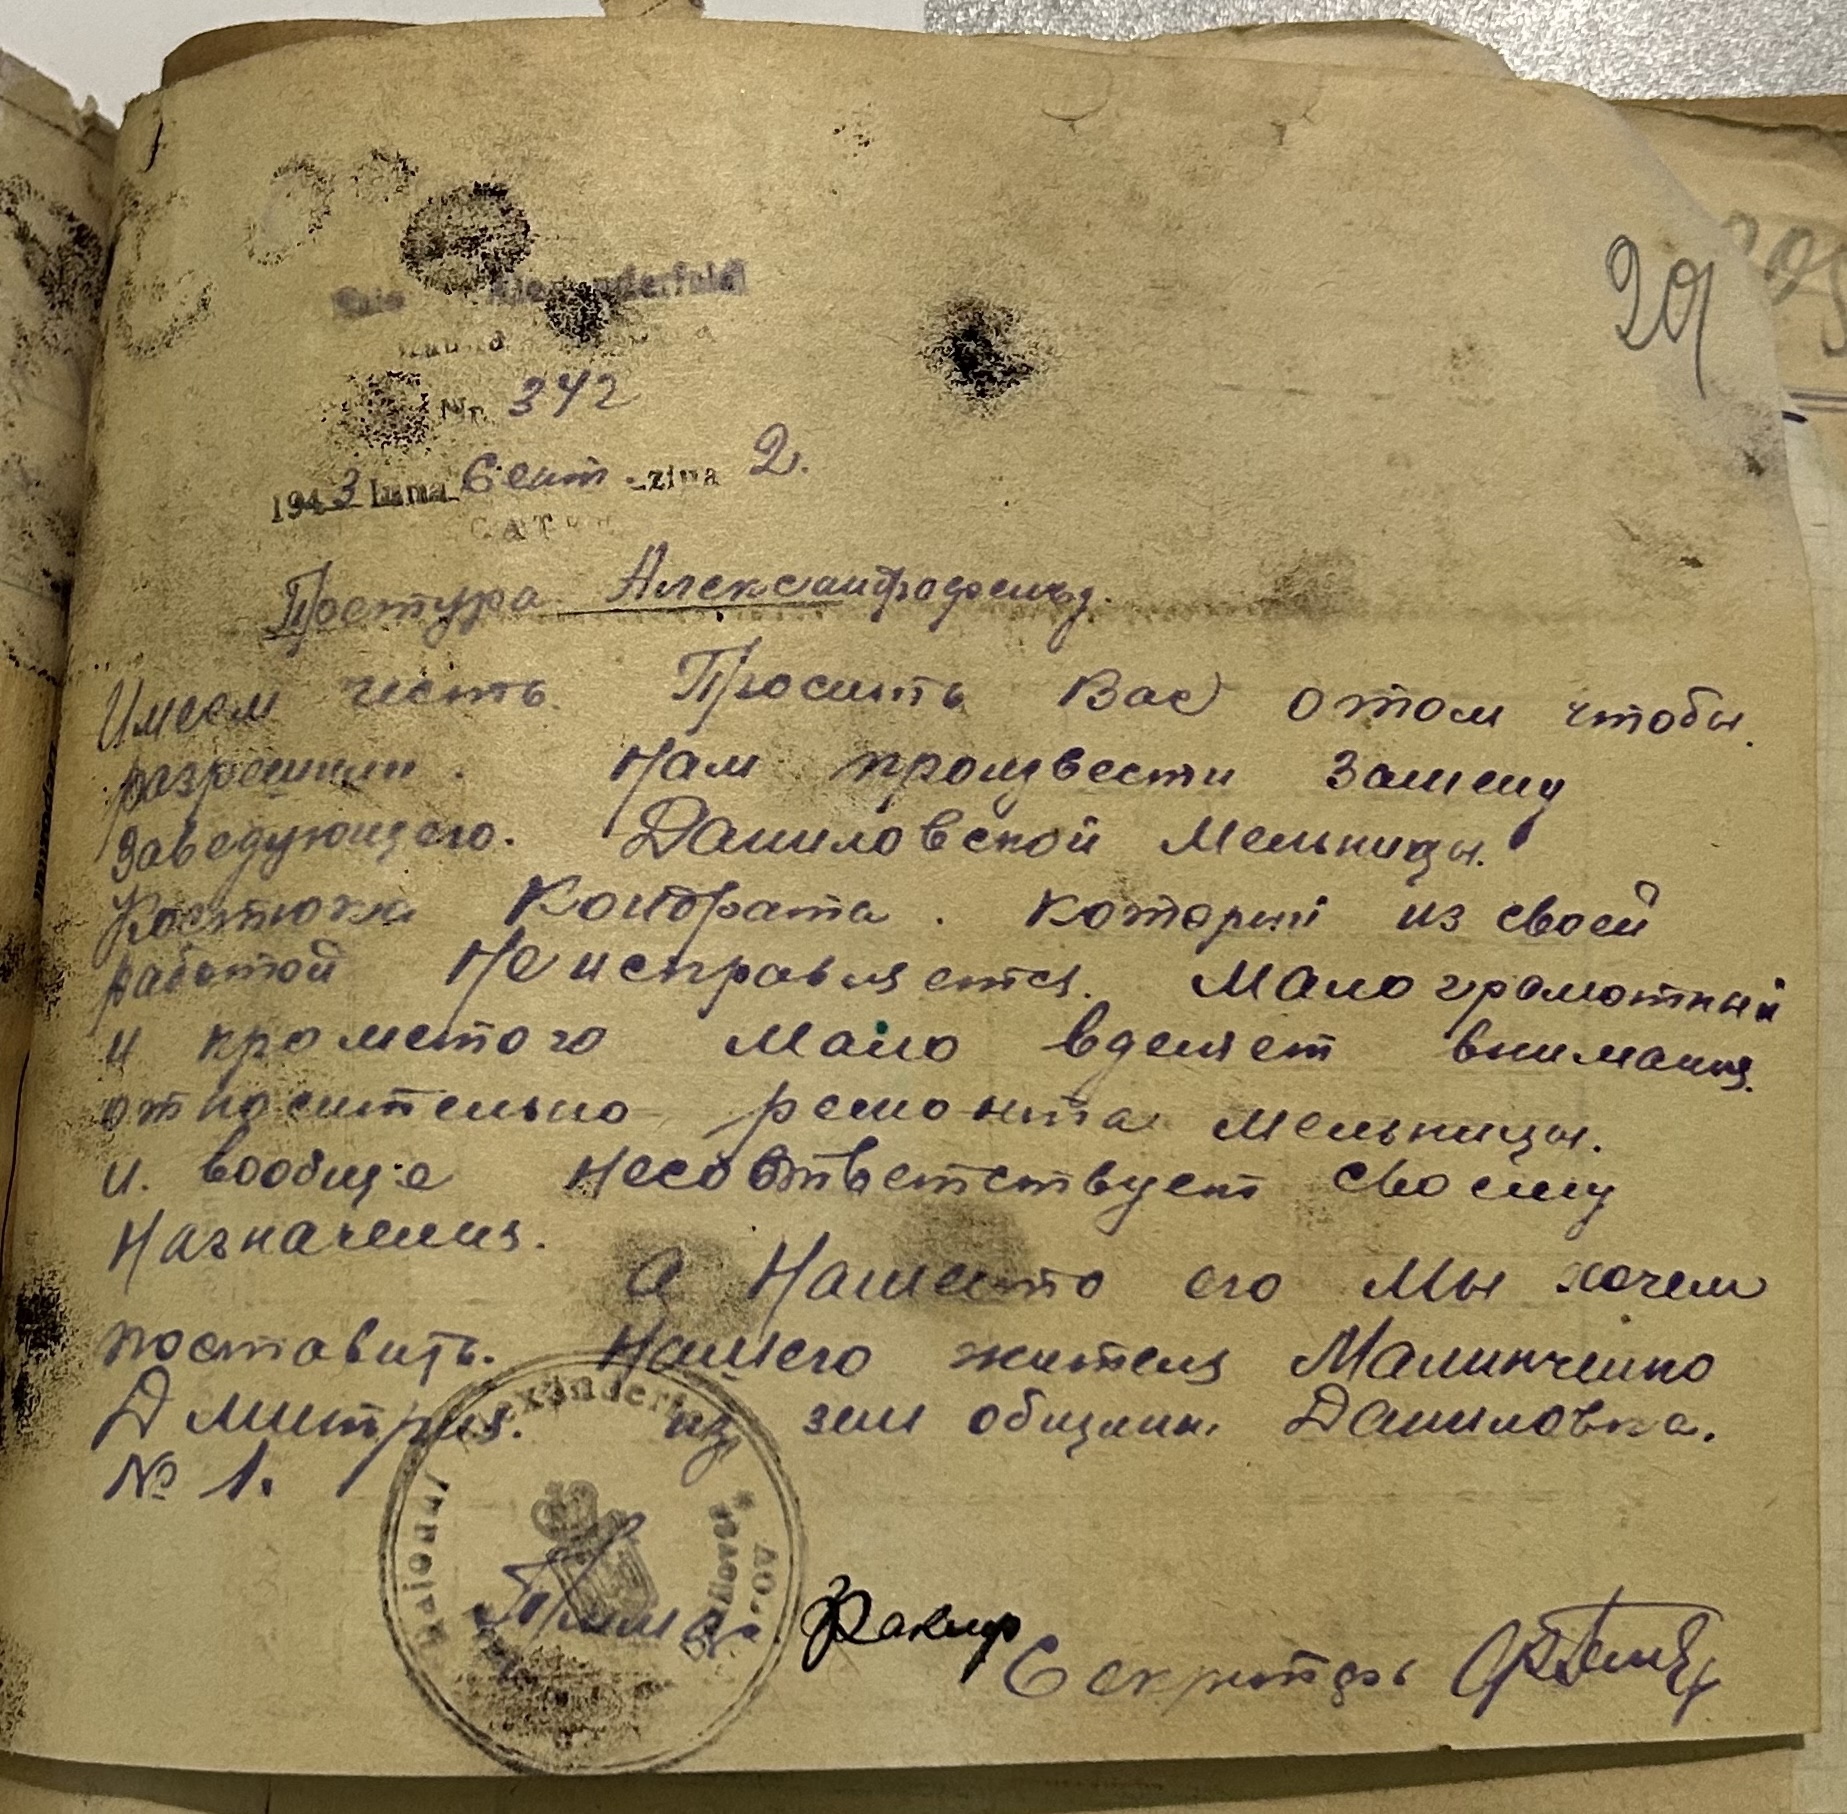 20
Alexanderfeld
Nr. 342
1943 Luna Сент. ziua 2.
Претура Александрафельд.
Имеем честь Просить Вас отом чтобы
разрешили. Нам произвести Замену
Заведующего. Даниловской Мельницы.
Костюка Кондрата. который из своей
работой Неисправляется. Малограмотный
и кроместого мало вделяет внимания.
относительно ремонта мельницы.
и. вообще несоответствует своему
Назначения.
А Наместо его мы хочем
поставить. Нашего жителя Малинченко
Дмитрия. из зем общины Даниловка.
№ 1.
Raional Alexanderfeld
Примар. Факир
Секритарь